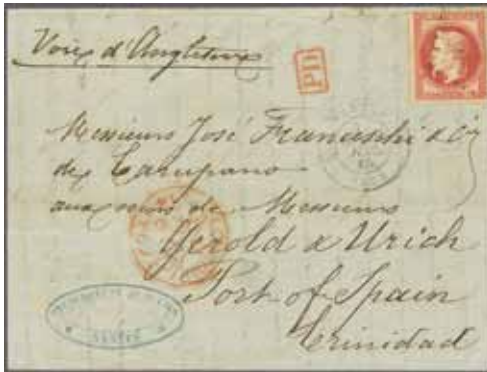 Voie d'Angleterre
PD
Messieurs José Franceschi & Cie
de Carupano
aux soins de Messieurs
Gerold & Urich
Port of Spain
Trinidad